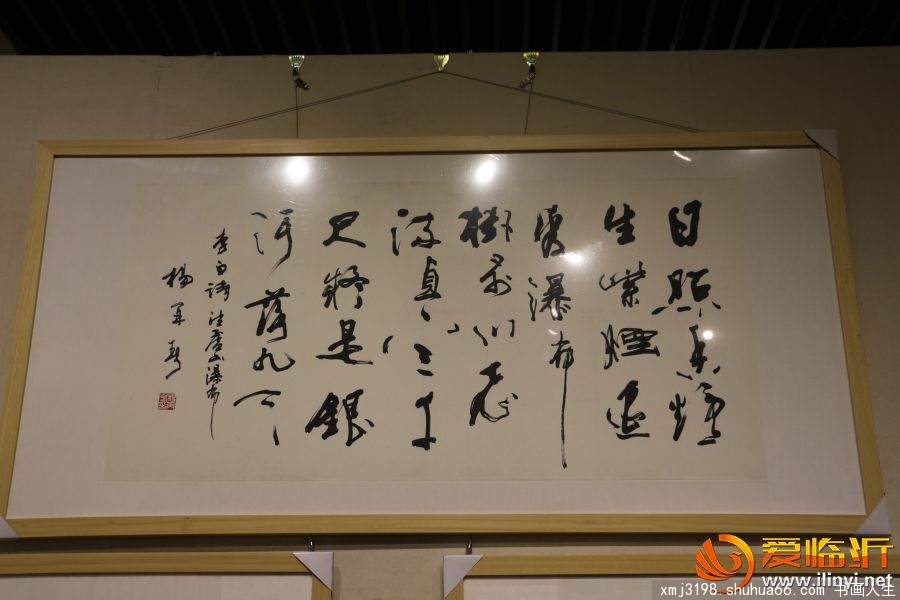 日照香爐
生紫煙遥
看瀑布
掛前川飛
流直下三千
尺疑是銀
河落九天
李白詩望廬山瀑布
楊
爱临沂
www.ilinyi.net
xmj3198.shuhua66.com 书画人生